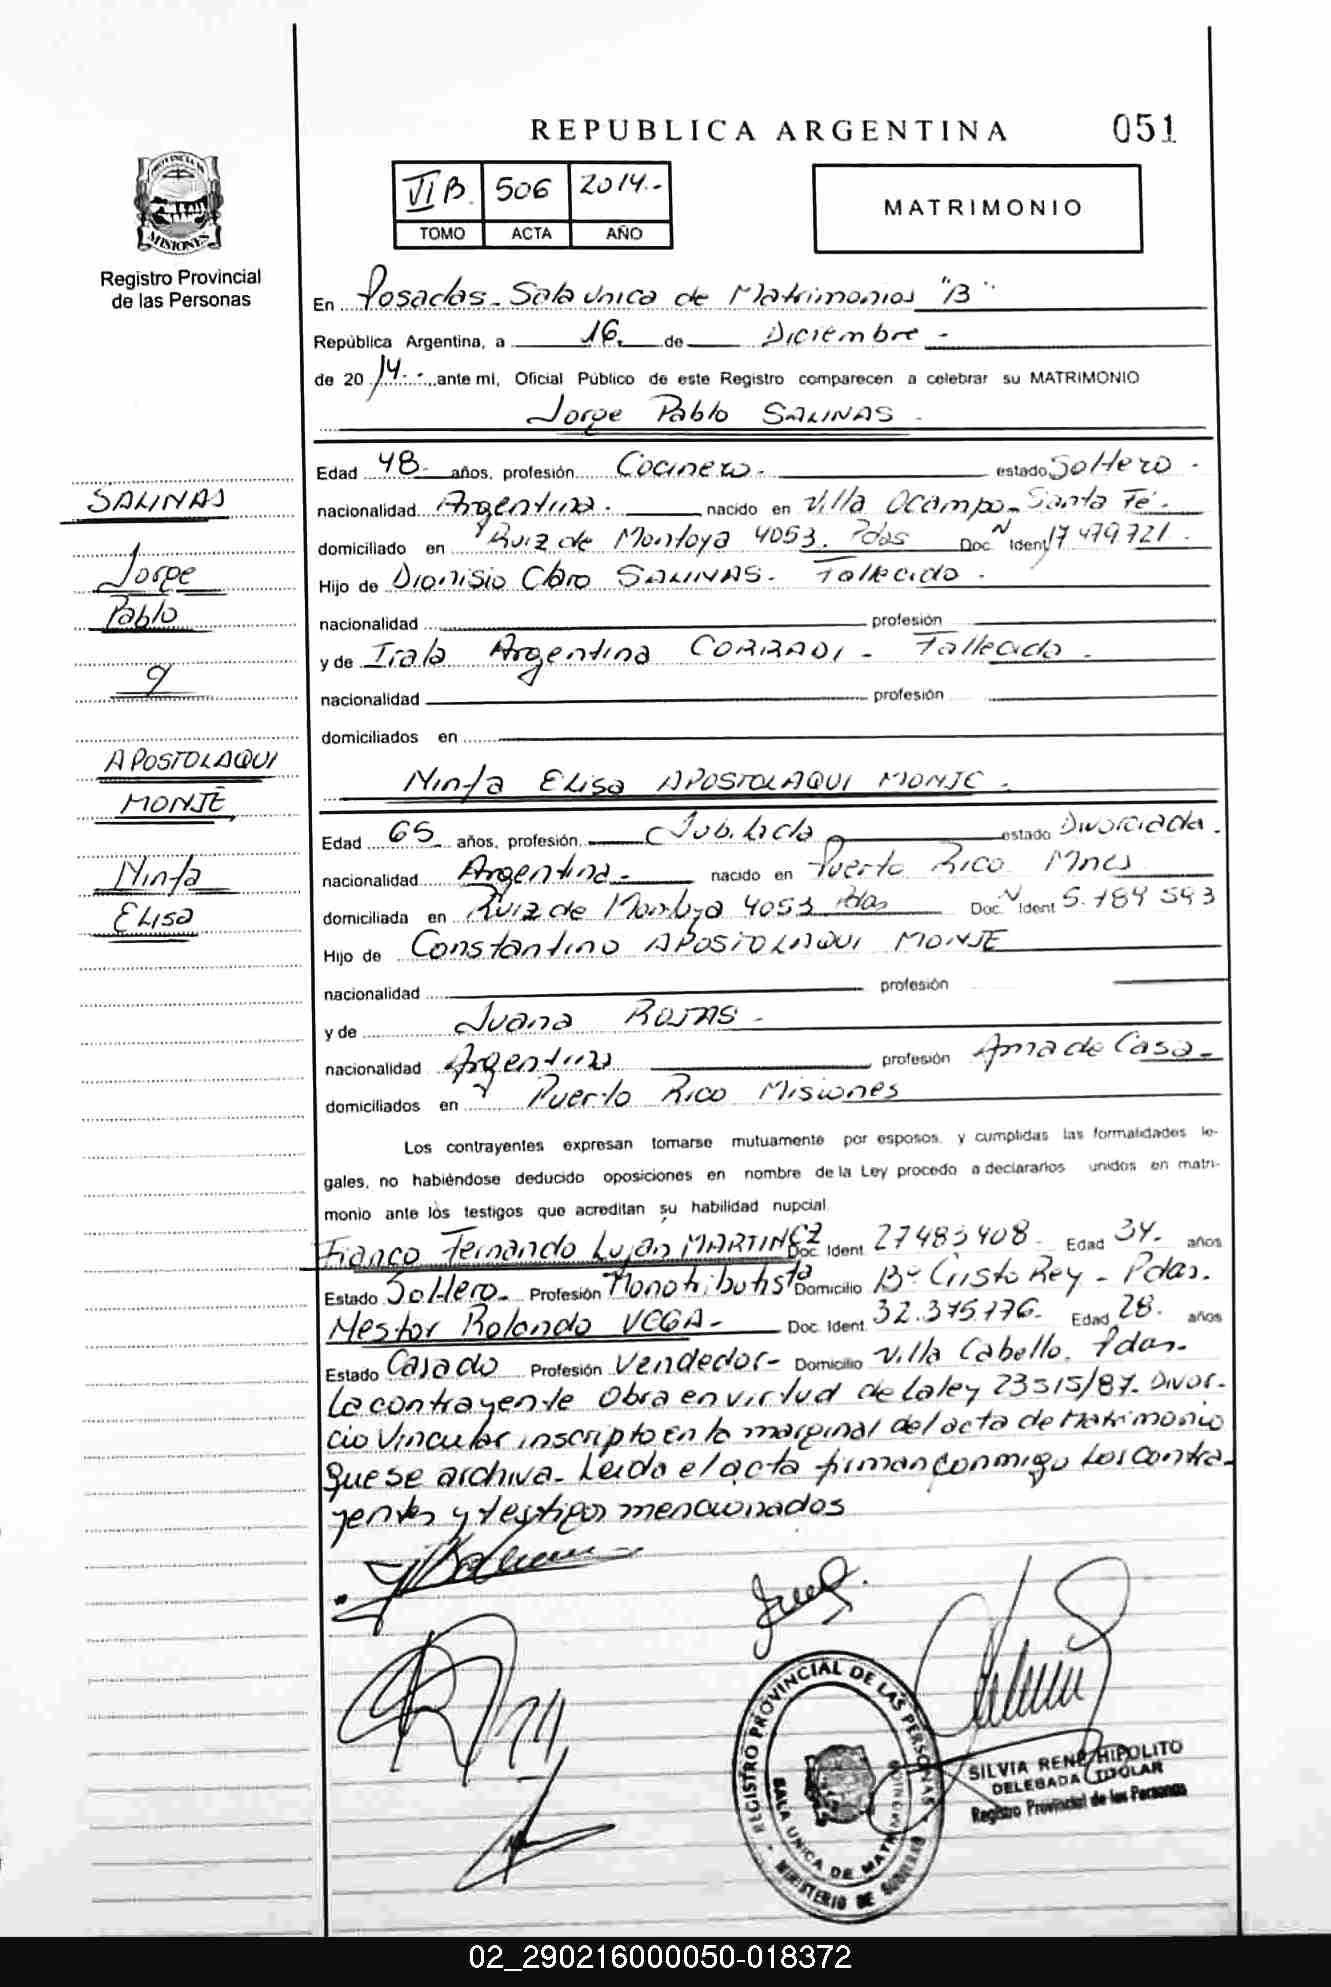 REPUBLICA ARGENTINA
051
VI B. 506 2014.-
TOMO ACTA AÑO
MATRIMONIO
PROVINCIA DE
MISIONES
Registro Provincial
de las Personas
En Posadas - Sala Unica de Matrimonios "B"
República Argentina, a 16. de Diciembre -
de 2014.- ante mi, Oficial Público de este Registro comparecen a celebrar su MATRIMONIO
Jorge Pablo SALINAS -
Edad 48- años, profesión Cocinero - estado Soltero -
nacionalidad Argentina - nacido en Villa Ocampo - Santa Fé -
domiciliado en Ruiz de Montoya 4053. Pdas Doc. N Ident 17 479 721 -
Hijo de Dionisio Claro SALINAS - Fallecido -
nacionalidad profesión
y de Irala Argentina CORRADI - Fallecida -
nacionalidad profesión
domiciliados en
Ninfa Elisa APOSTOLAQUI MONJE -
Edad 65 años, profesión Jubilada estado Divorciada.
nacionalidad Argentina - nacido en Puerto Rico Mnes
domiciliada en Ruiz de Montoya 4053 Pdas Doc. N Ident 5.184 593
Hijo de Constantino APOSTOLAQUI MONJE
nacionalidad profesión
y de Juana ROJAS -
nacionalidad Argentina profesión Ama de Casa -
domiciliados en Puerto Rico Misiones
Los contrayentes expresan tomarse mutuamente por esposos, y cumplidas las formalidades le-
gales, no habiéndose deducido oposiciones en nombre de la Ley procedo a declararlos unidos en matri-
monio ante lòs testigos que acreditan su habilidad nupcial
Franco Fernando Lujan MARTINEZ Doc. Ident. 27483408 - Edad 34. años
Estado Soltero - Profesión Monotributista Domicilio Bº Cristo Rey - Pdas.
Nestor Rolando VEGA - Doc. Ident. 32.375.776. Edad 28. años
Estado Casado Profesión Vendedor - Domicilio Villa Cabello. Pdas.
La contrayente Obra en virtud de la ley 23515/87. Divor-
cio Vincular inscripto en la marginal del acta de Matrimonio
que se archiva - Leida el acta firman conmigo los contra-
yentes y testigos mencionados
SALINAS
Jorge
Pablo
y
APOSTOLAQUI
MONJE,
Ninfa
Elisa
REGISTRO PROVINCIAL DE LAS PERSONAS
SALA UNICA DE MATRIMONIOS
MINISTERIO DE GOBIERNO
SILVIA RENE HIPOLITO
DELEGADA TITULAR
Registro Provincial de las Personas
02_290216000050-018372